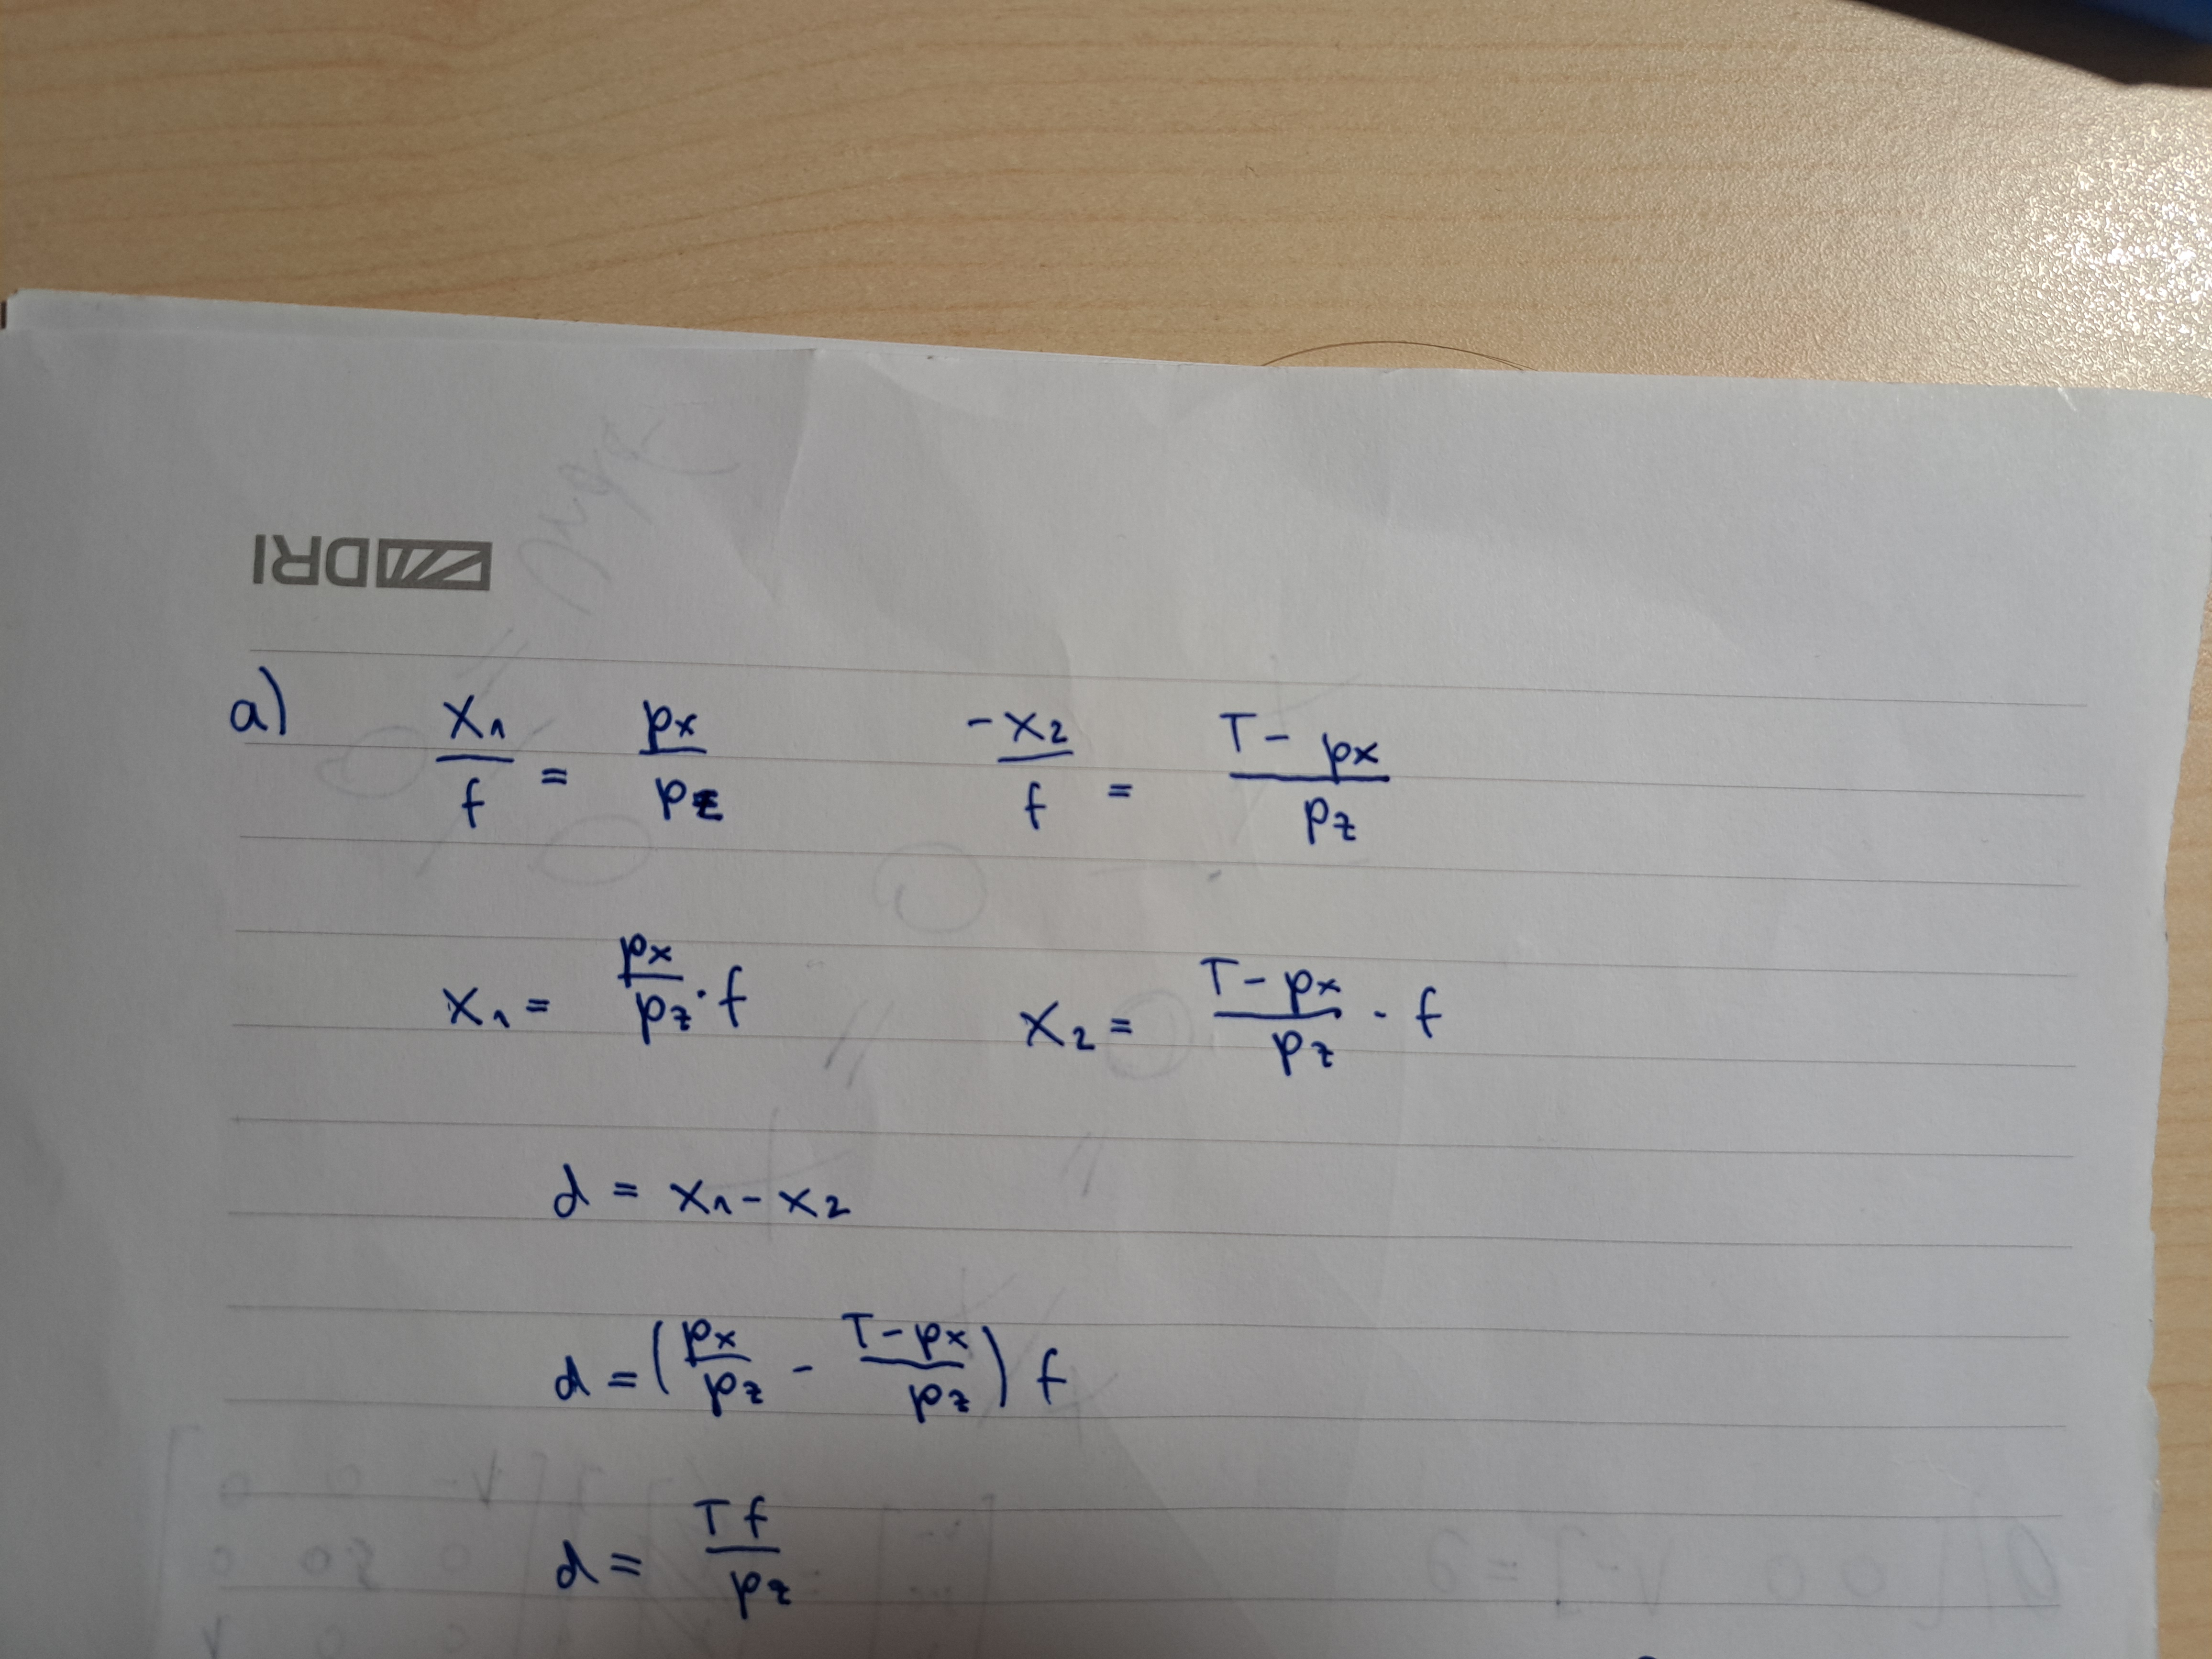 DRI
a) x₁/f = px/pz -x₂/f = (T - px)/pz
x₁ = px/pz · f x₂ = (T - px)/pz · f
d = x₁ - x₂
d = (px/pz - (T - px)/pz) f
d = Tf/pz